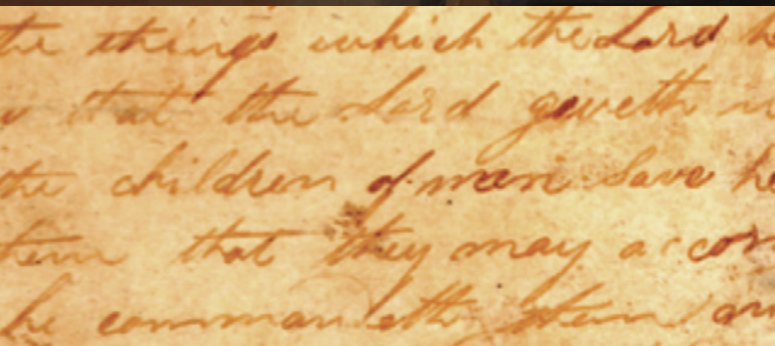 the things which the Lord h
that the Lord geveth
the children of men save he
them that they may accom
he commandeth them